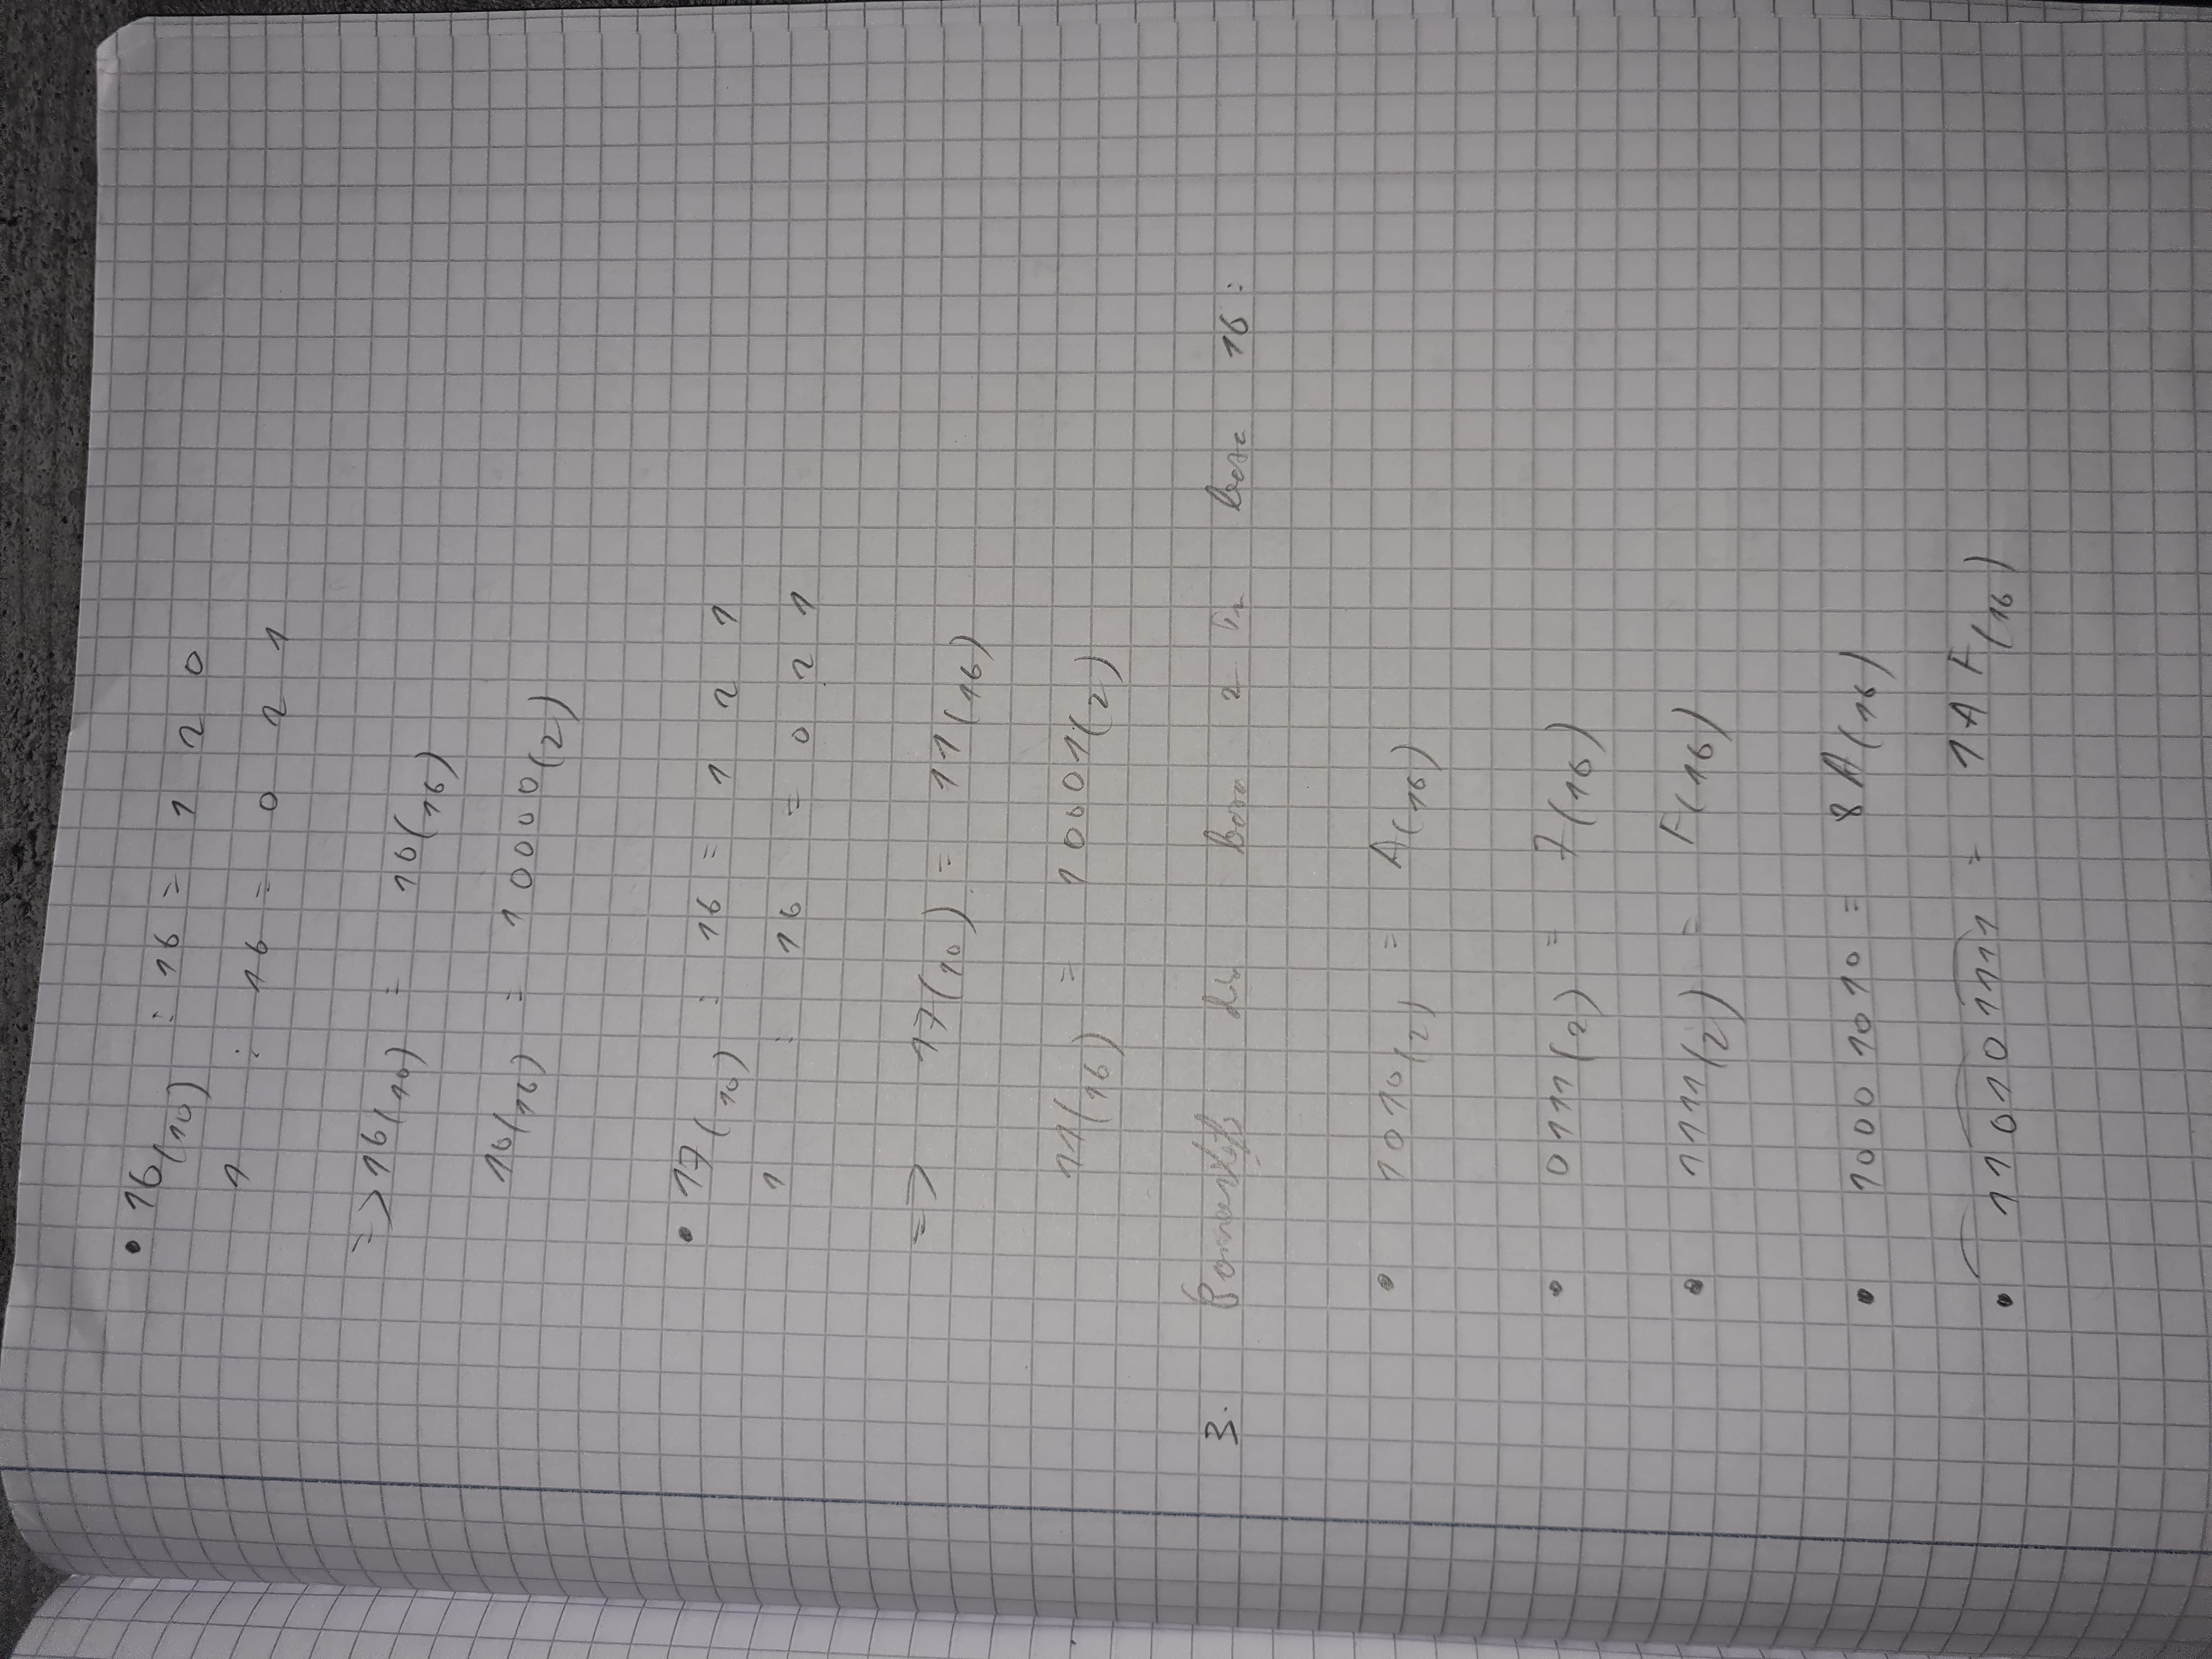 • 16(10) : 16 = 1 r 0
1 : 16 = 0 r 1
=> 16(10) = 10(16)
10(16) = 10000(2)
• 17(10) : 16 = 1 r 1
1 : 16 = 0 r 1
=> 17(10) = 11(16)
11(16) = 10001(2)
3. din baza 2 în baza 16:
• 1010(2) = A(16)
• 0111(2) = 7(16)
• 1111(2) = F(16)
• 1000 1010 = 8A(16)
• 110101111 = 1AF(16)